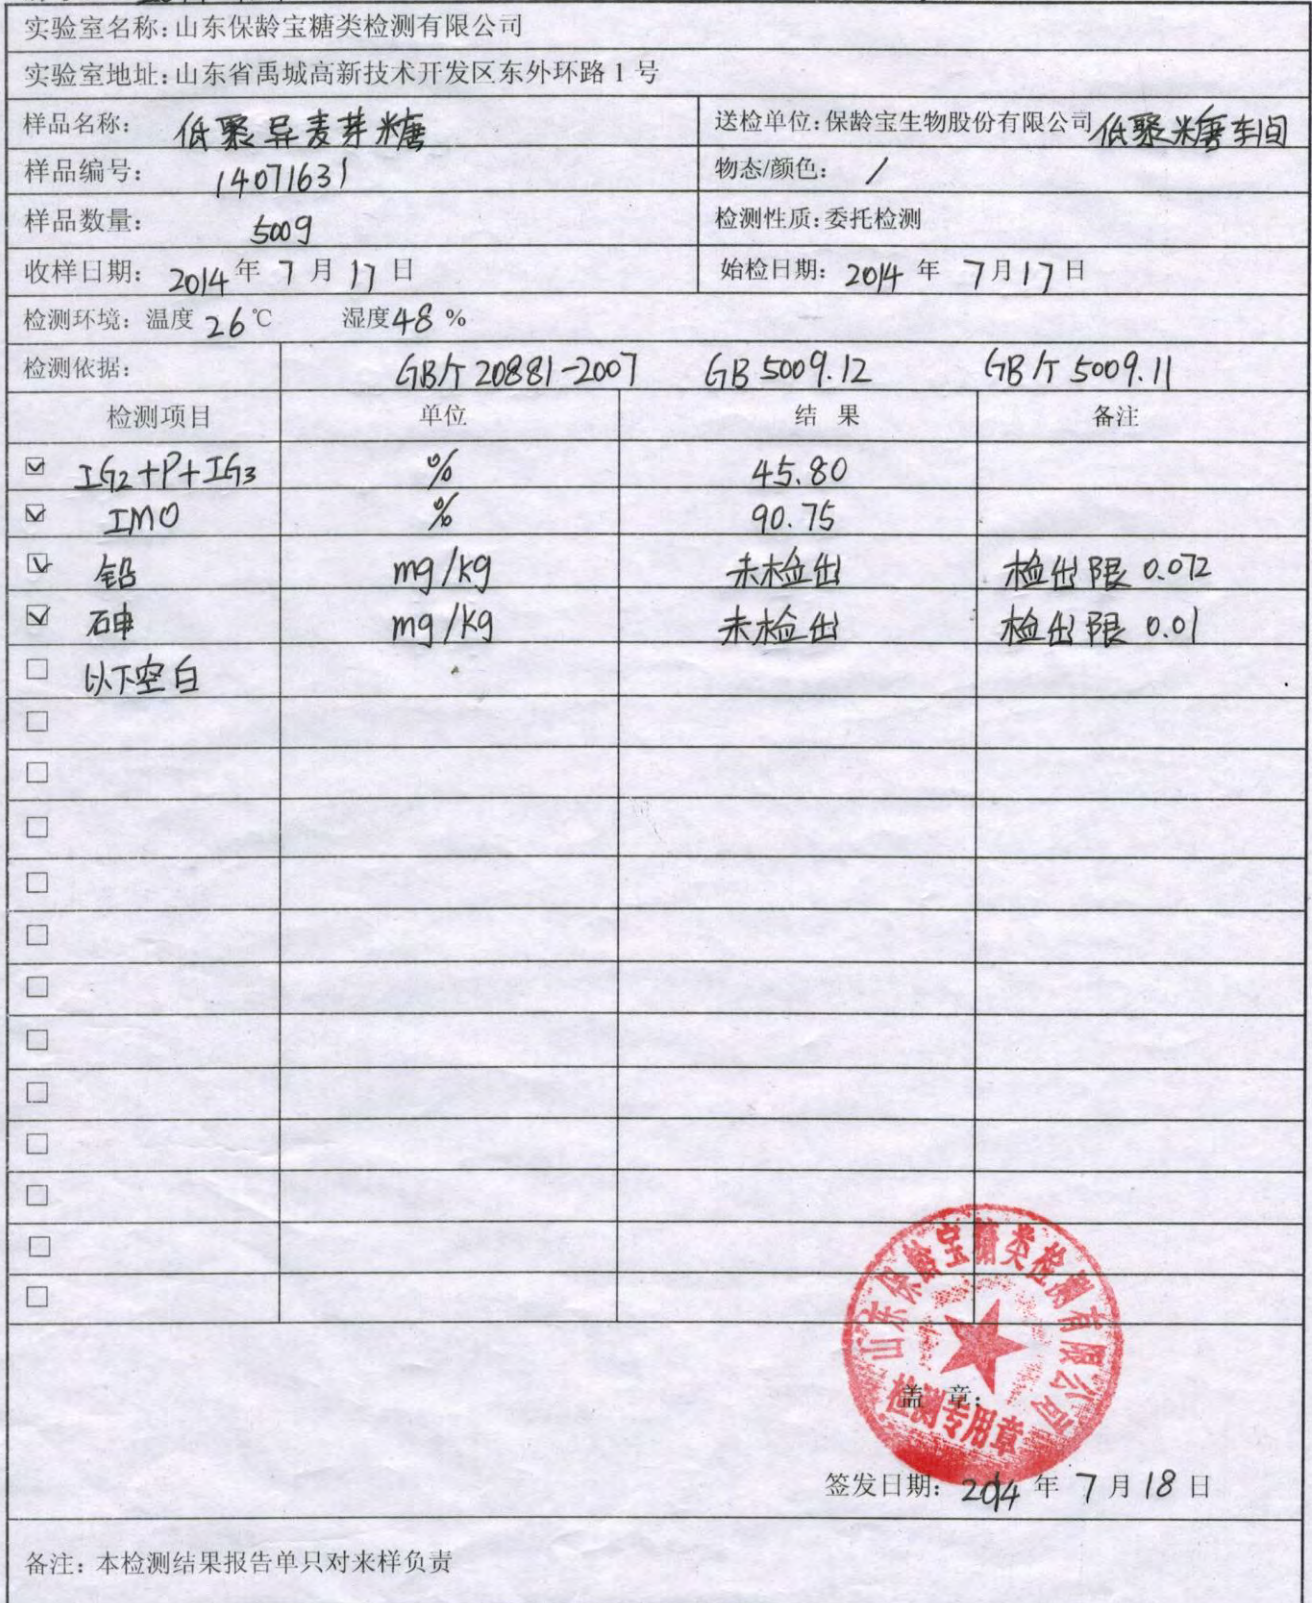 实验室名称:山东保龄宝糖类检测有限公司
实验室地址:山东省禹城高新技术开发区东外环路1号
样品名称: 低聚异麦芽糖 送检单位:保龄宝生物股份有限公司低聚糖车间
样品编号: 14071631 物态/颜色: /
样品数量: 500g 检测性质:委托检测
收样日期: 2014年7月17日 始检日期: 2014年7月17日
检测环境: 温度26℃ 湿度48%
检测依据: GB/T 20881-2007 GB 5009.12 GB/T 5009.11
检测项目 单位 结果 备注
☑ IG2+P+IG3 % 45.80
☑ IMO % 90.75
☑ 铅 mg/kg 未检出 检出限 0.072
☑ 砷 mg/kg 未检出 检出限 0.01
□ 以下空白
□
□
□
□
□
□
□
□
□
□
□
□
山东保龄宝糖类检测有限公司
盖 章:
检测专用章
签发日期: 2014年7月18日
备注: 本检测结果报告单只对来样负责